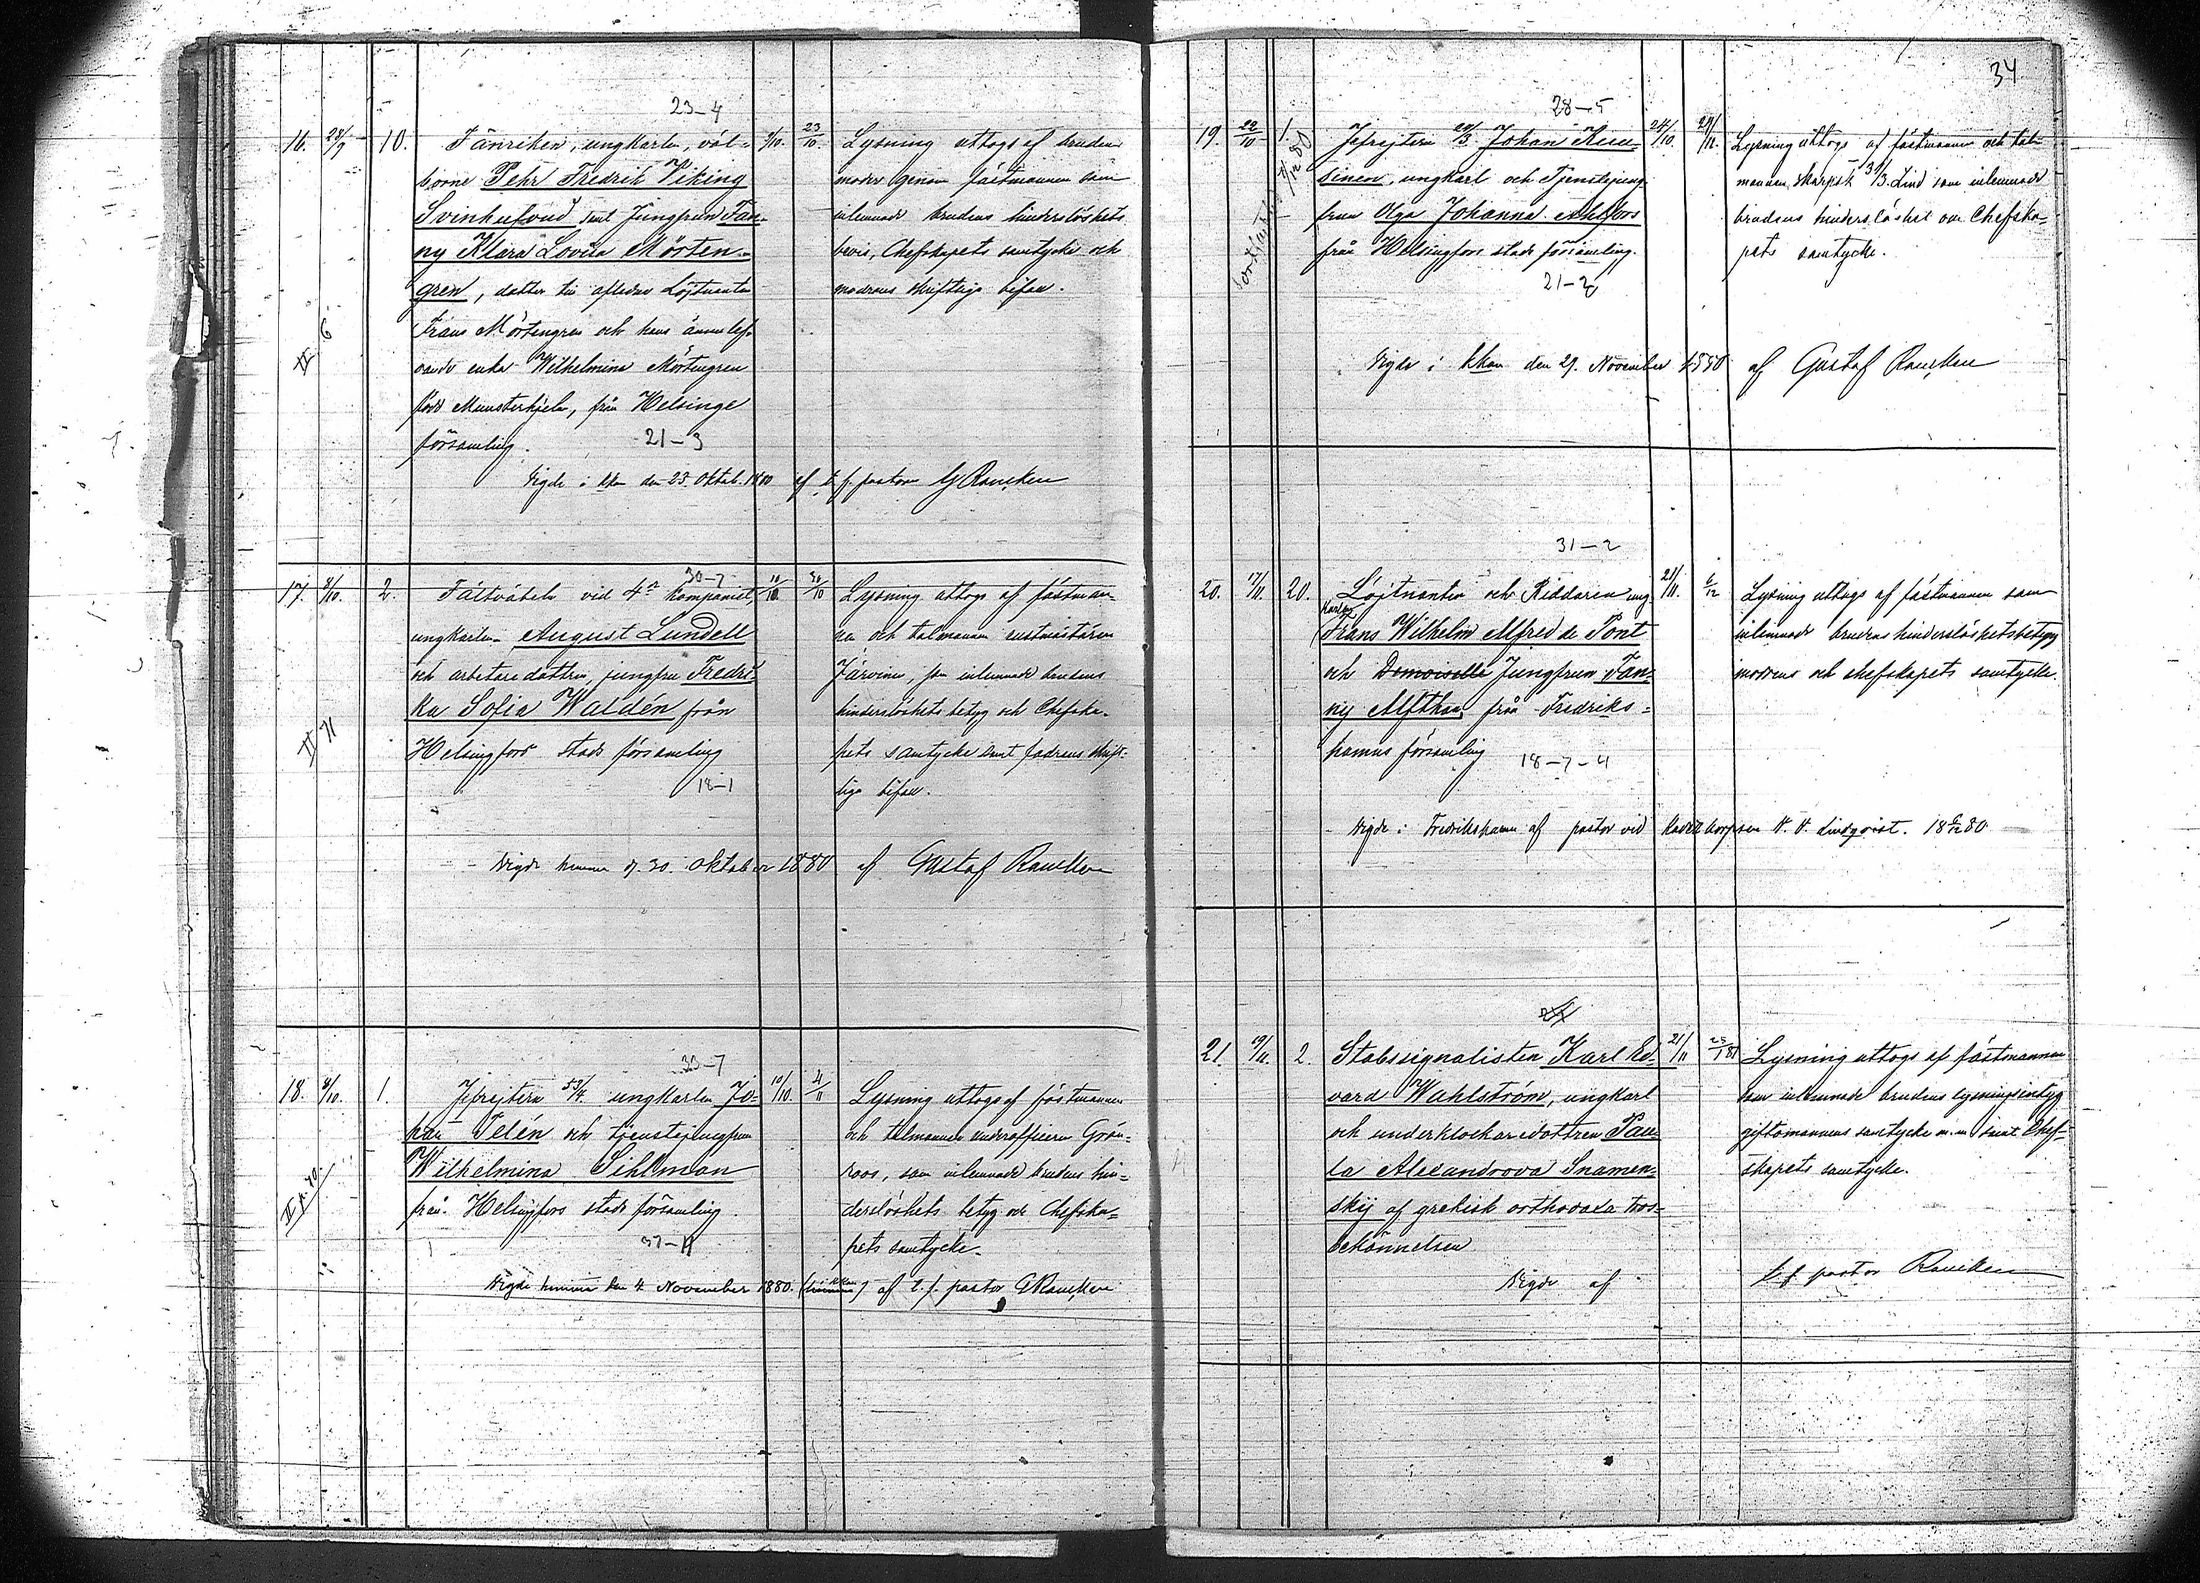 23-4
16. 28/9 10. Fänriken, ungkarlen, väl-
borne Pehr Fredrik Viking
Svinhufvud samt Jungfrun Fan-
ny Klara Lovisa Mörten-
gren, dotter till aflidne Löjtnanten
Frans Mörtengren och hans ännu lef-
vande enka Wilhelmina Mörtengren
född Munsterhjelm, från Helsinge
församling.
21-3
9/10. 23/10. Lysning uttogs af brudens
moder genom fästmannen som
inlemnade brudens hinderslöshets
bevis, Chefskapets samtycke och
modrens skriftliga bifall.
II 6
Vigde i kkan den 23 Oktob. 1880 af t. f. pastorn G Rancken
30-7
17. 8/10. 2. Fältväbeln vid 4de kompaniet,
ungkarlen August Lundell
och arbetaredottren, jungfru Fredri-
ka Sofia Waldén från
Helsingfors stads församling
18-1
10/10. 30/10 Lysning uttogs af fästman-
nen och talmannen rustmästaren
Järvinen, som inlemnade brudens
hinderslöshets betyg och Chefska-
pets samtycke samt fadrens skrift-
liga bifall.
II 11
Vigde hemma d. 30. Oktober 1880 af Gustaf Rancken
33-7
18. 8/10. 1. Jefrejtern 53/4. ungkarlen Jo-
han Telén och tjenstejungfrun
Wilhelmina Sihlman
från Helsingfors stads församling.
37-11
10/10. 4/11 Lysning uttogs af fästmannen
och talmannen underofficern Grön-
roos, som inlemnade brudens hin-
derslöshets betyg och Chefska-
pets samtycke.
Vigde hemma den 4 November 1880. (hemma) kkan af t. f. pastor G Rancken
34
28-5
19. 22/10 1. Jefrejtern Johan
sinen, ungkarl och Tjenstejung-
frun Olga Johanna Ahlfors
från Helsingfors stads församling.
21-2
24/10. 29/11. Lysning uttogs af fästmannen och tal-
mannen, skarpsk. 31/3. Lind som inlemnade
brudens hinderslöshet och Chefska-
pets samtycke.
Vigde i kkan den 29. November 1880 af Gustaf Rancken
31-2
20. 17/11. 20. Löjtnanten och Riddaren ung
karlen
Frans Wilhelm Alfred de Pont
och Demoiselle Jungfrun Fan-
ny Alfthan från Fredriks-
hamns församling
18-7-4
21/11. 6/12 Lysning uttogs af fästmannen som
inlemnade brudens hinderslöshetsbetyg
modrens och chefskapets samtycke.
Vigde i Fredrikshamn af pastor vid Kadettkorpsen K. V. Lindqvist. 18 6/12 80
21. 19/11. 2. Stabssignalisten Karl Ed-
vard Wahlström, ungkarl
och underklockaredottren Pau-
la Alexandrova Snamen-
skij af grekisk orthodoxa tros-
bekännelsen
21/11 Lysning uttogs af fästmannen
som inlemnade brudens lysningsintyg
giftomannens samtycke m.m samt Chef-
skapets samtycke.
Vigde af
t. f. pastor Rancken